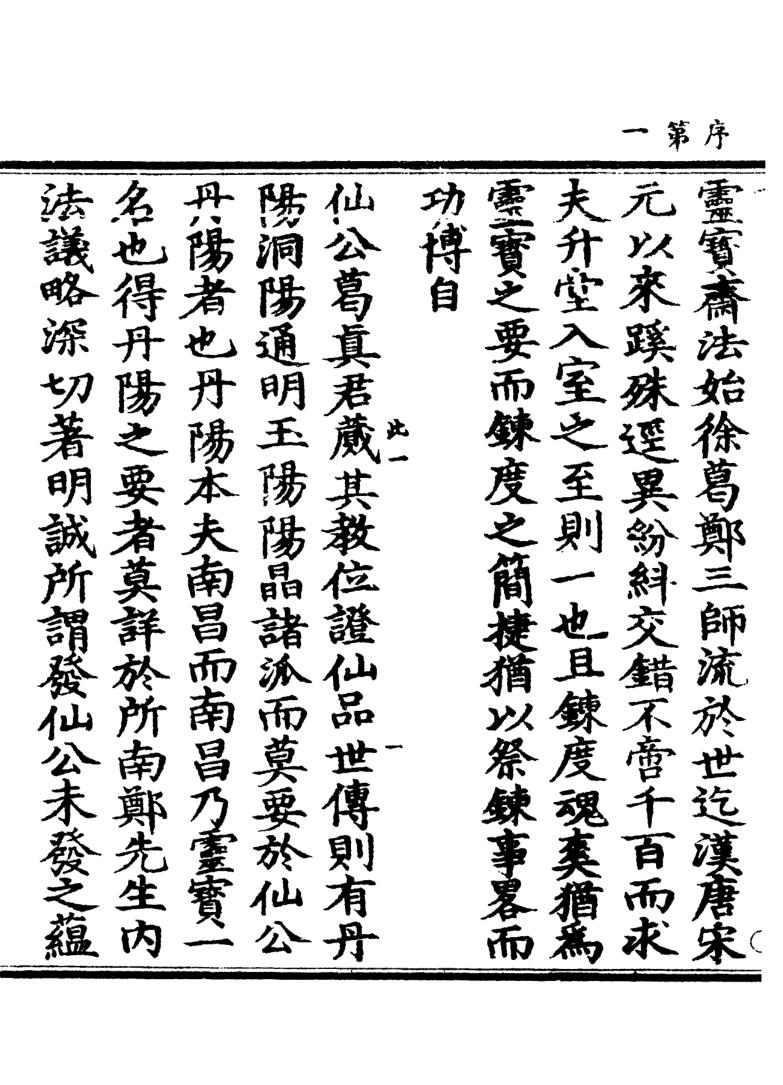 序第一
靈寶齋法始徐葛鄭三師流於世迄漢唐宋
元以來蹊殊逕異紛糾交錯不啻千百而求
夫升堂入室之至則一也且鍊度魂爽猶為
靈寶之要而鍊度之簡捷猶以祭鍊事畧而
功博自
仙公葛真君蕆其教位證仙品世傳則有丹
陽洞陽通明玉陽陽晶諸派而莫要於仙公
丹陽者也丹陽本夫南昌而南昌乃靈寶一
名也得丹陽之要者莫詳於所南鄭先生內
法議略深切著明誠所謂發仙公未發之蘊
此一
一